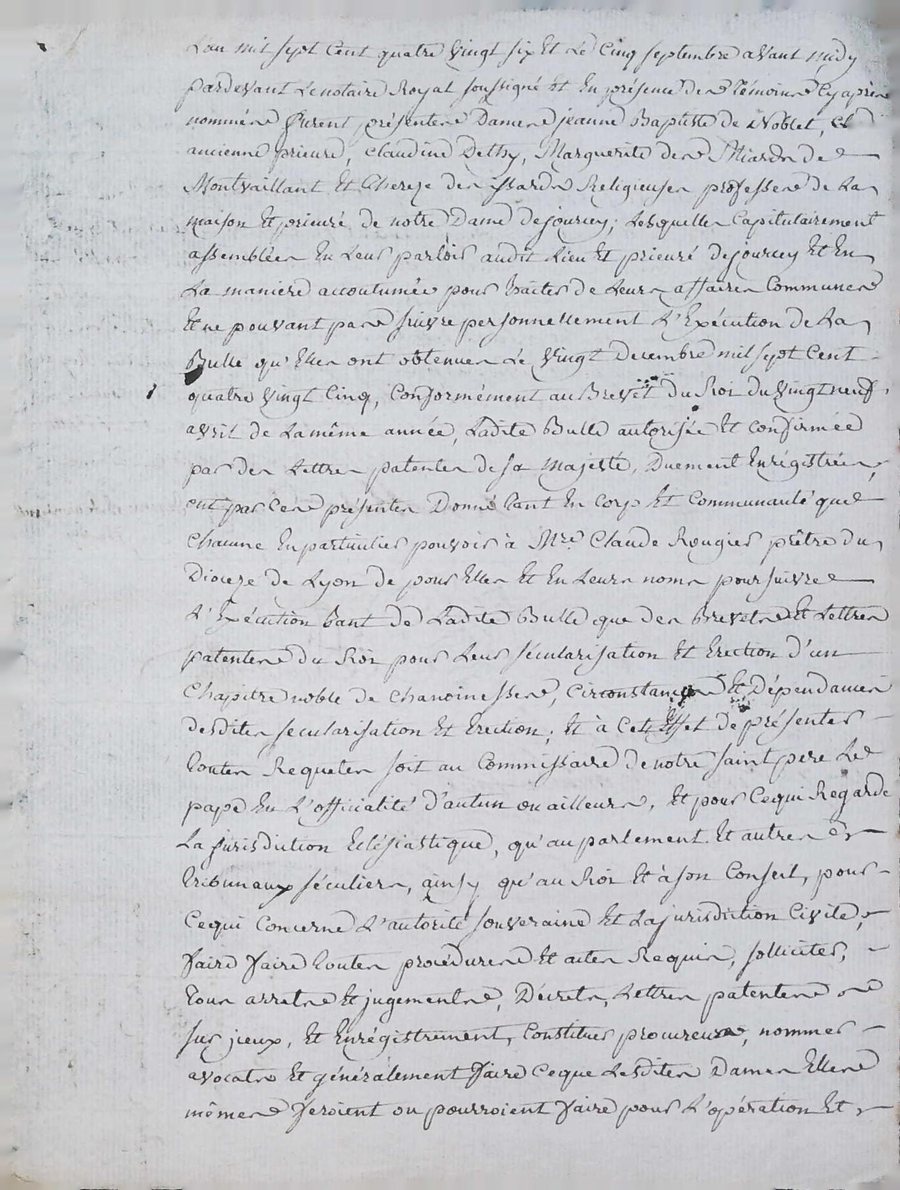 L'an mil sept Cent quatre vingt six Et Le Cinq septembre avant midy
pardevant Le notaire Royal soussigné Et En présence des témoins Cy après
nommés furent présentes Dames jeanne Baptiste de Noblet,
ancienne prieure, Claudine Dethy, Marguerite des Miards de
Montvaillant Et therese des Essards Religieuses professes de La
maison Et prieuré de notre Dame de jourcey; Lesquelles Capitulairement
assemblées En Leur parloir audit Lieu Et prieuré de jourcey Et En
La maniere accoutumée pour traiter de Leurs affaires Communes
Et ne pouvant pas suivre personnellement L'Exécution de La
Bulle qu'Elles ont obtenues Le vingt decembre mil sept Cent
quatre vingt Cinq, Conformément au Brevet du Roi du vingt neuf
avril de La même année, Ladite Bulle autorisée Et confirmée
par des Lettres patentes de sa majesté, Duement Enrégistrées,
ont par Ces présentes Donné tant En Corp Et Communauté que
Chacune En particulier pouvoir à Mre. Claude Rougier prêtre du
Dioceze de Lyon de pour Elles Et En Leurs noms poursuivre
L'Exécution tant de Ladite Bulle que des Brevets Et Lettres
patentes du Roi pour Leur sécularisation Et Erection d'un
Chapitre noble de Chanoinesses, Circonstances Et Dépendances
desdites secularisation Et Erection; Et à Cet Effet de présenter
toutes Requetes soit au Commissaire de notre saint pere Le
pape En L'officialité d'autun ou ailleurs, Et pour Ce qui Regarde
La jurisdiction Eclésiastique, qu'au parlement Et autres
tribunaux séculiers, ainsy qu'au Roi Et à son Conseil, pour
Ce qui Concerne L'autorité souveraine Et La jurisdiction Civile,
faire faire toutes procédures Et actes Requis, solliciter,
tous arrets Et jugements, Décrets, Lettres patentes
sur jceux, Et Enrégistrement, Constituer procureurs, nommer
avocats Et généralement faire Ce que Lesdites Dames Elles
mêmes feroient ou pourroient faire pour L'opération Et